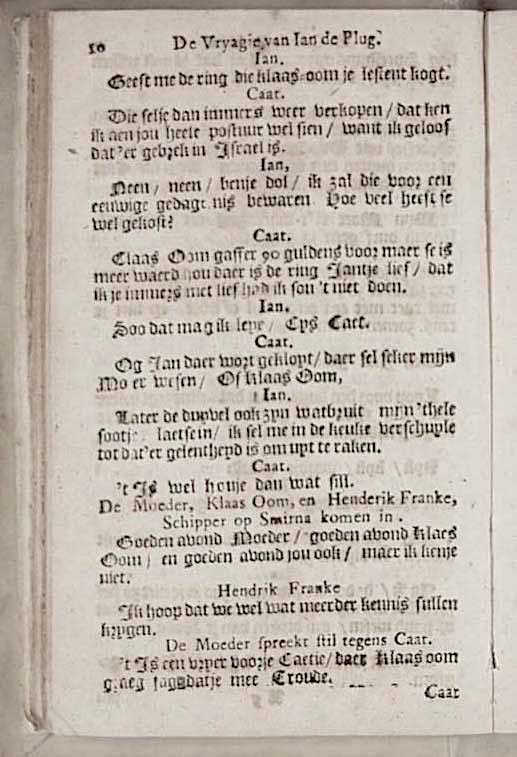 10 De Vryagie van Ian de Plug.
Ian.
Geeft me de ring die klaas-oom je lestent kogt.
Caat.
Die selje dan immers weer verkopen / dat ken
ik aen jou heele postuur wel sien / want ik geloof
dat 'er gebrek in Israel is.
Ian,
Neen / neen / benje dol / ik zal die voor een
eeuwige gedagtenis bewaren Hoe veel heeft se
wel gekost?
Caat.
Claas Oom gaffer 90 guldens voor maer se is
meer waerd hou daer is de ring Jantje lief / dat
ik je immers niet lief had ik sou 't niet doen.
Ian.
Soo dat mag ik leye / Cys Caet.
Caat.
Og Jan daer wort geklopt / daer sel seker mijn
Mo er wesen / Of Klaas Oom,
Ian.
Later de duyvel ook zyn watbruit mijn 't hele
sootje laetse in / ik sel me in de keuke verschuyle
tot dat'er gelentheyd is om uyt te raken.
Caat.
't Is wel houje dan wat stil.
De Moeder, Klaas Oom, en Henderik Franke,
Schipper op Smirna komen in.
Goeden avond Moeder / goeden avond Klaes
Oom / en goeden avond jou ook / maer ik kenje
niet.
Hendrik Franke
Ik hoop dat we wel wat meerder kennis sullen
krygen.
De Moeder spreekt stil tegens Caat.
't Is een vryer voorje Caetie / daer Klaas oom
graeg sag datje mee Troude.
Caat